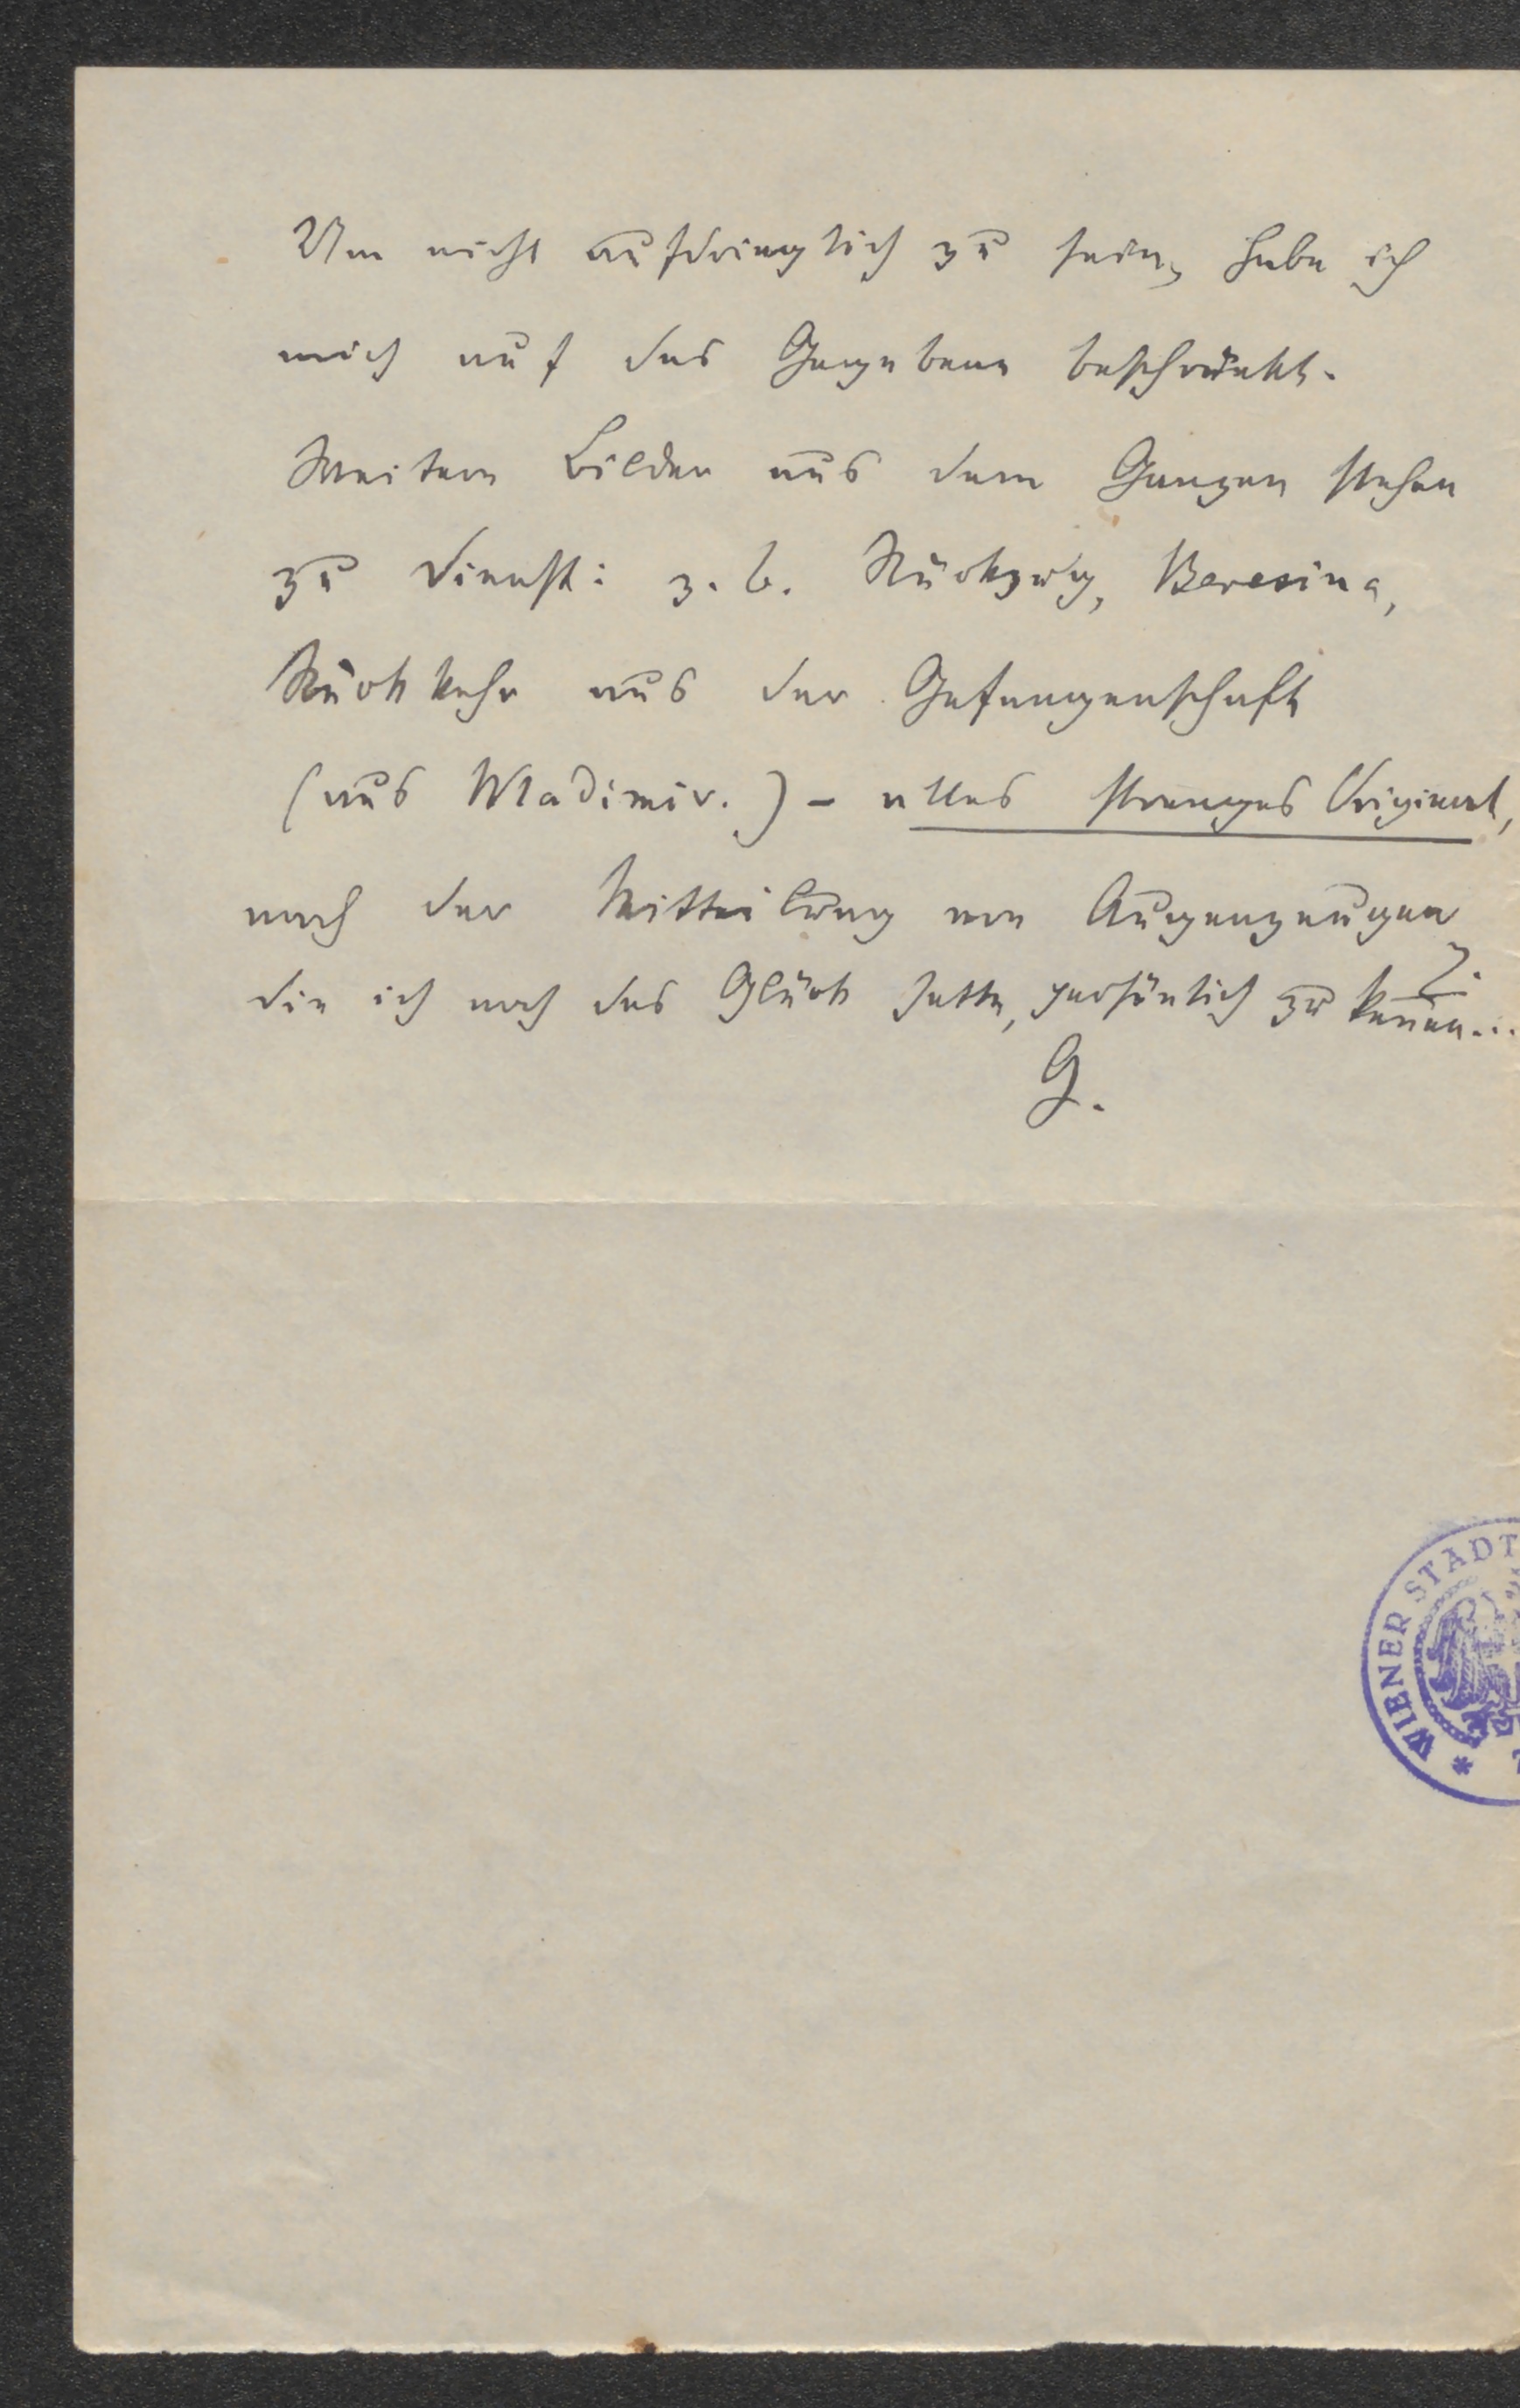 Um nicht aufdringlich zu sein, habe ich
mich auf das Gegebene beschränkt.
Weitere Bilder aus dem Ganzen stehen
zu Dienst: z. b. Rückzug, Beresina,
Rückkehr aus der Gefangenschaft
(aus Wladimir.) – alles strenges Original,
nach der Mitteilung von Augenzeugen,
die ich noch das Glück hatte, persönlich zu kennen...
G.
WIENER STADT